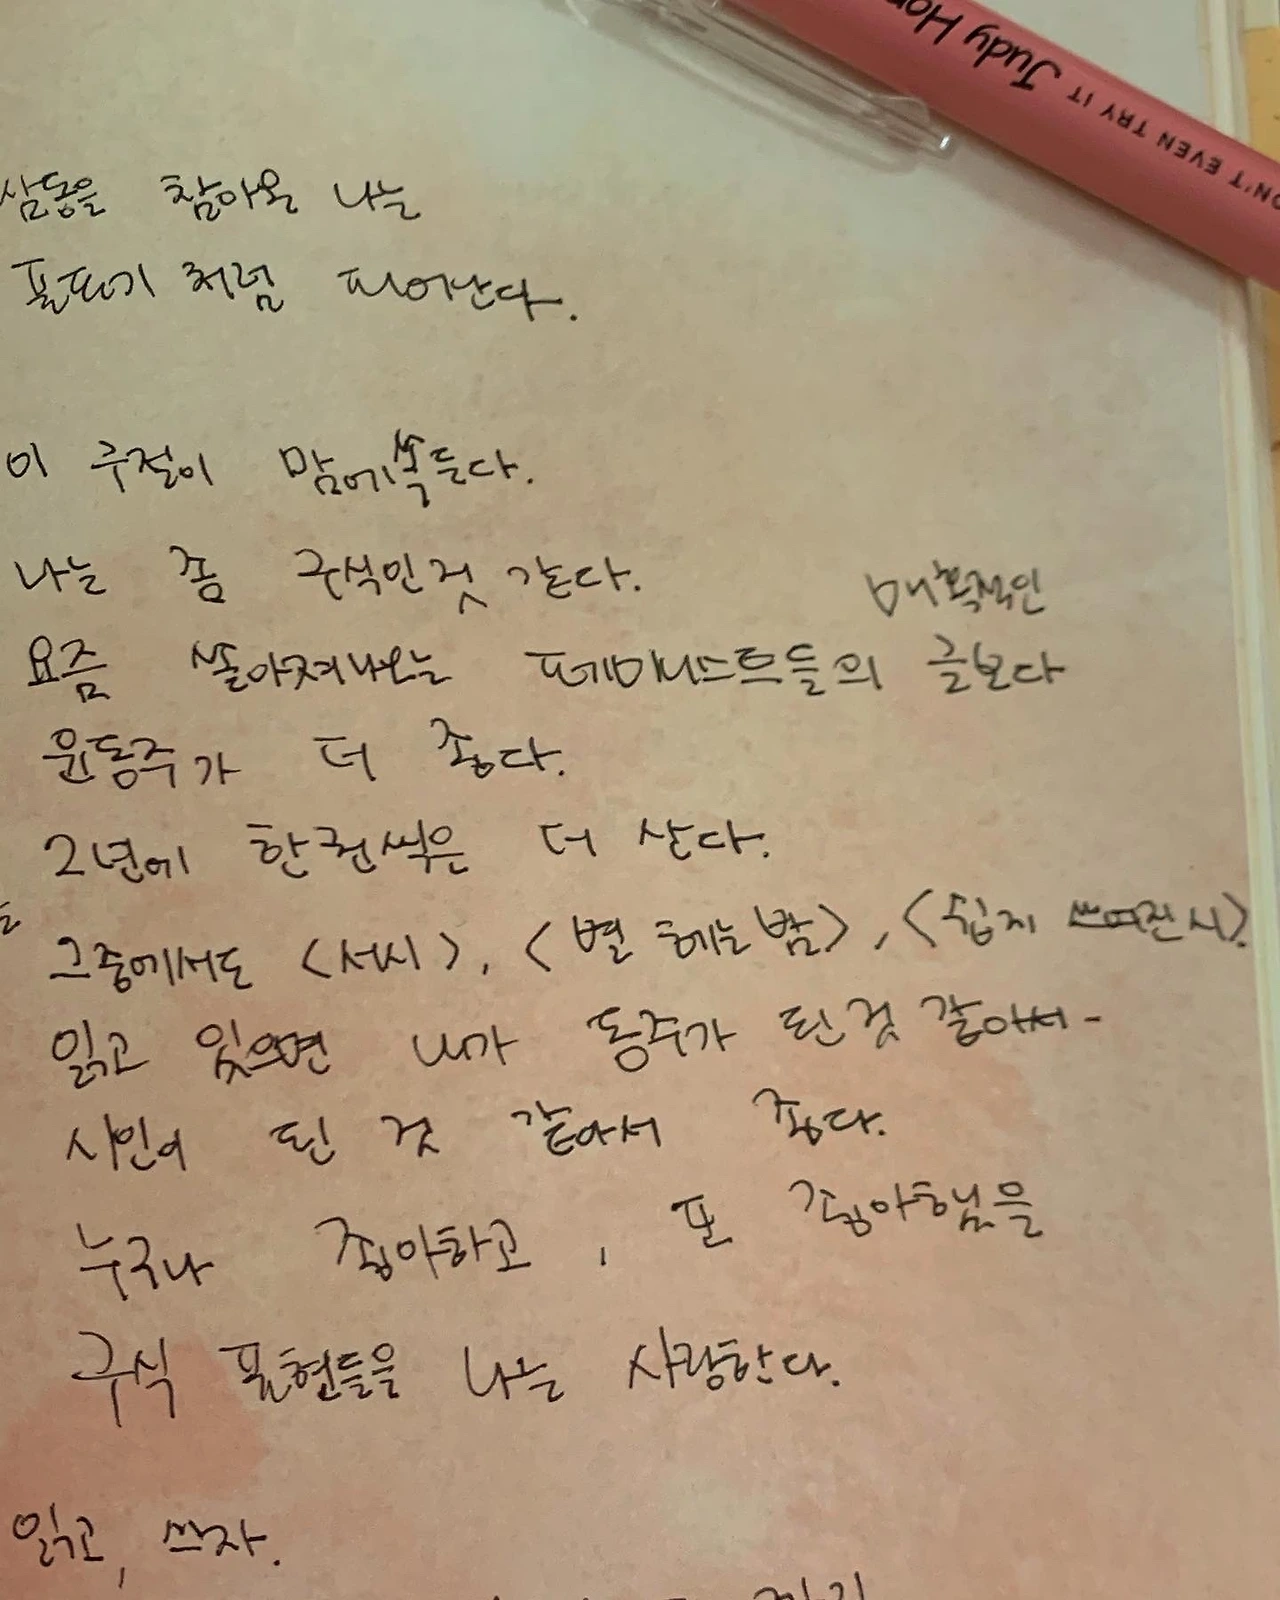 Judy Ho
ON'T EVEN TRY IT
삼동을 참아온 나는
풀포기 처럼 피어난다.
이 구절이 맘에 쏙 든다.
나는 좀 구식인것 같다.
매혹적인
요즘 쏟아져나오는 페미니스트들의 글보다
윤동주가 더 좋다.
2년에 한권씩은 더 산다.
그중에서도 <서시>, <별 헤는 밤>, <쉽게 쓰여진 시>.
읽고 있으면 내가 동주가 된것 같아서-
시인이 된 것 같아서 좋다.
누구나 좋아하고, 또 좋아했음을
구식 표현들을 나는 사랑한다.
읽고, 쓰자.